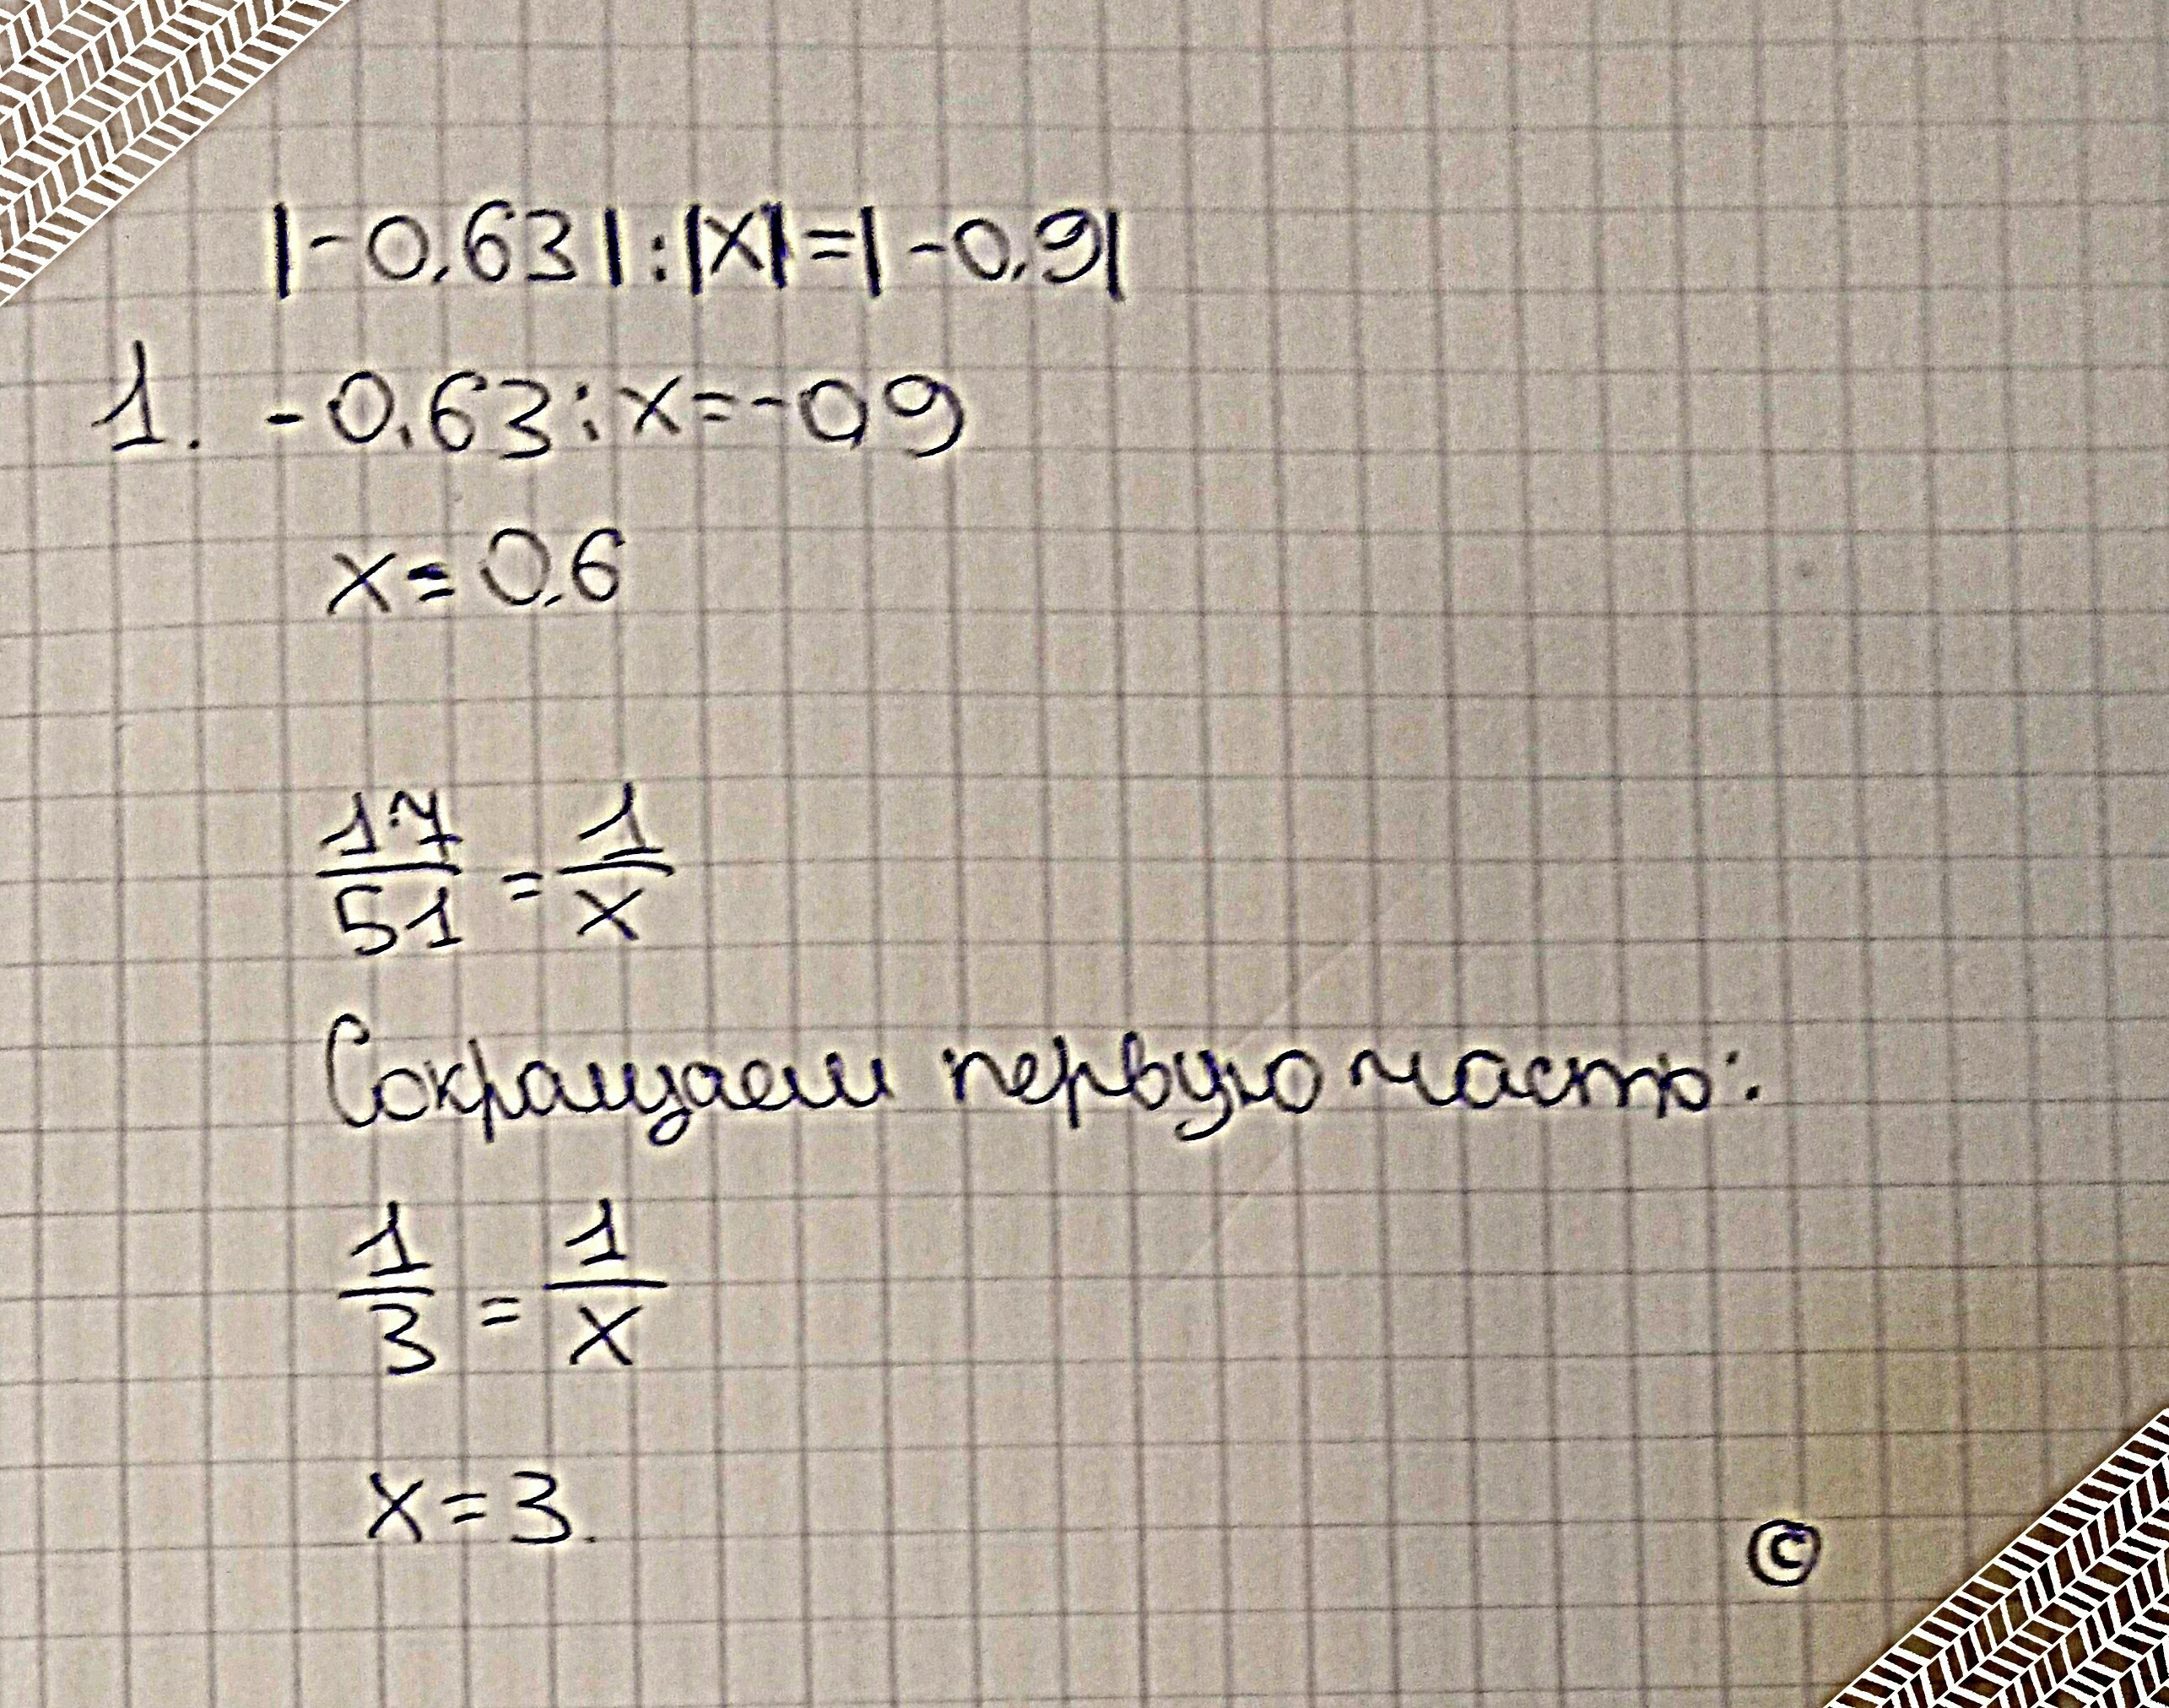 |-0,63|:|x|=|-0,9|
1. -0,63:x=-0,9
x=0,6
17/51 = 1/x
Сокращаем первую часть:
1/3 = 1/x
x=3.
©